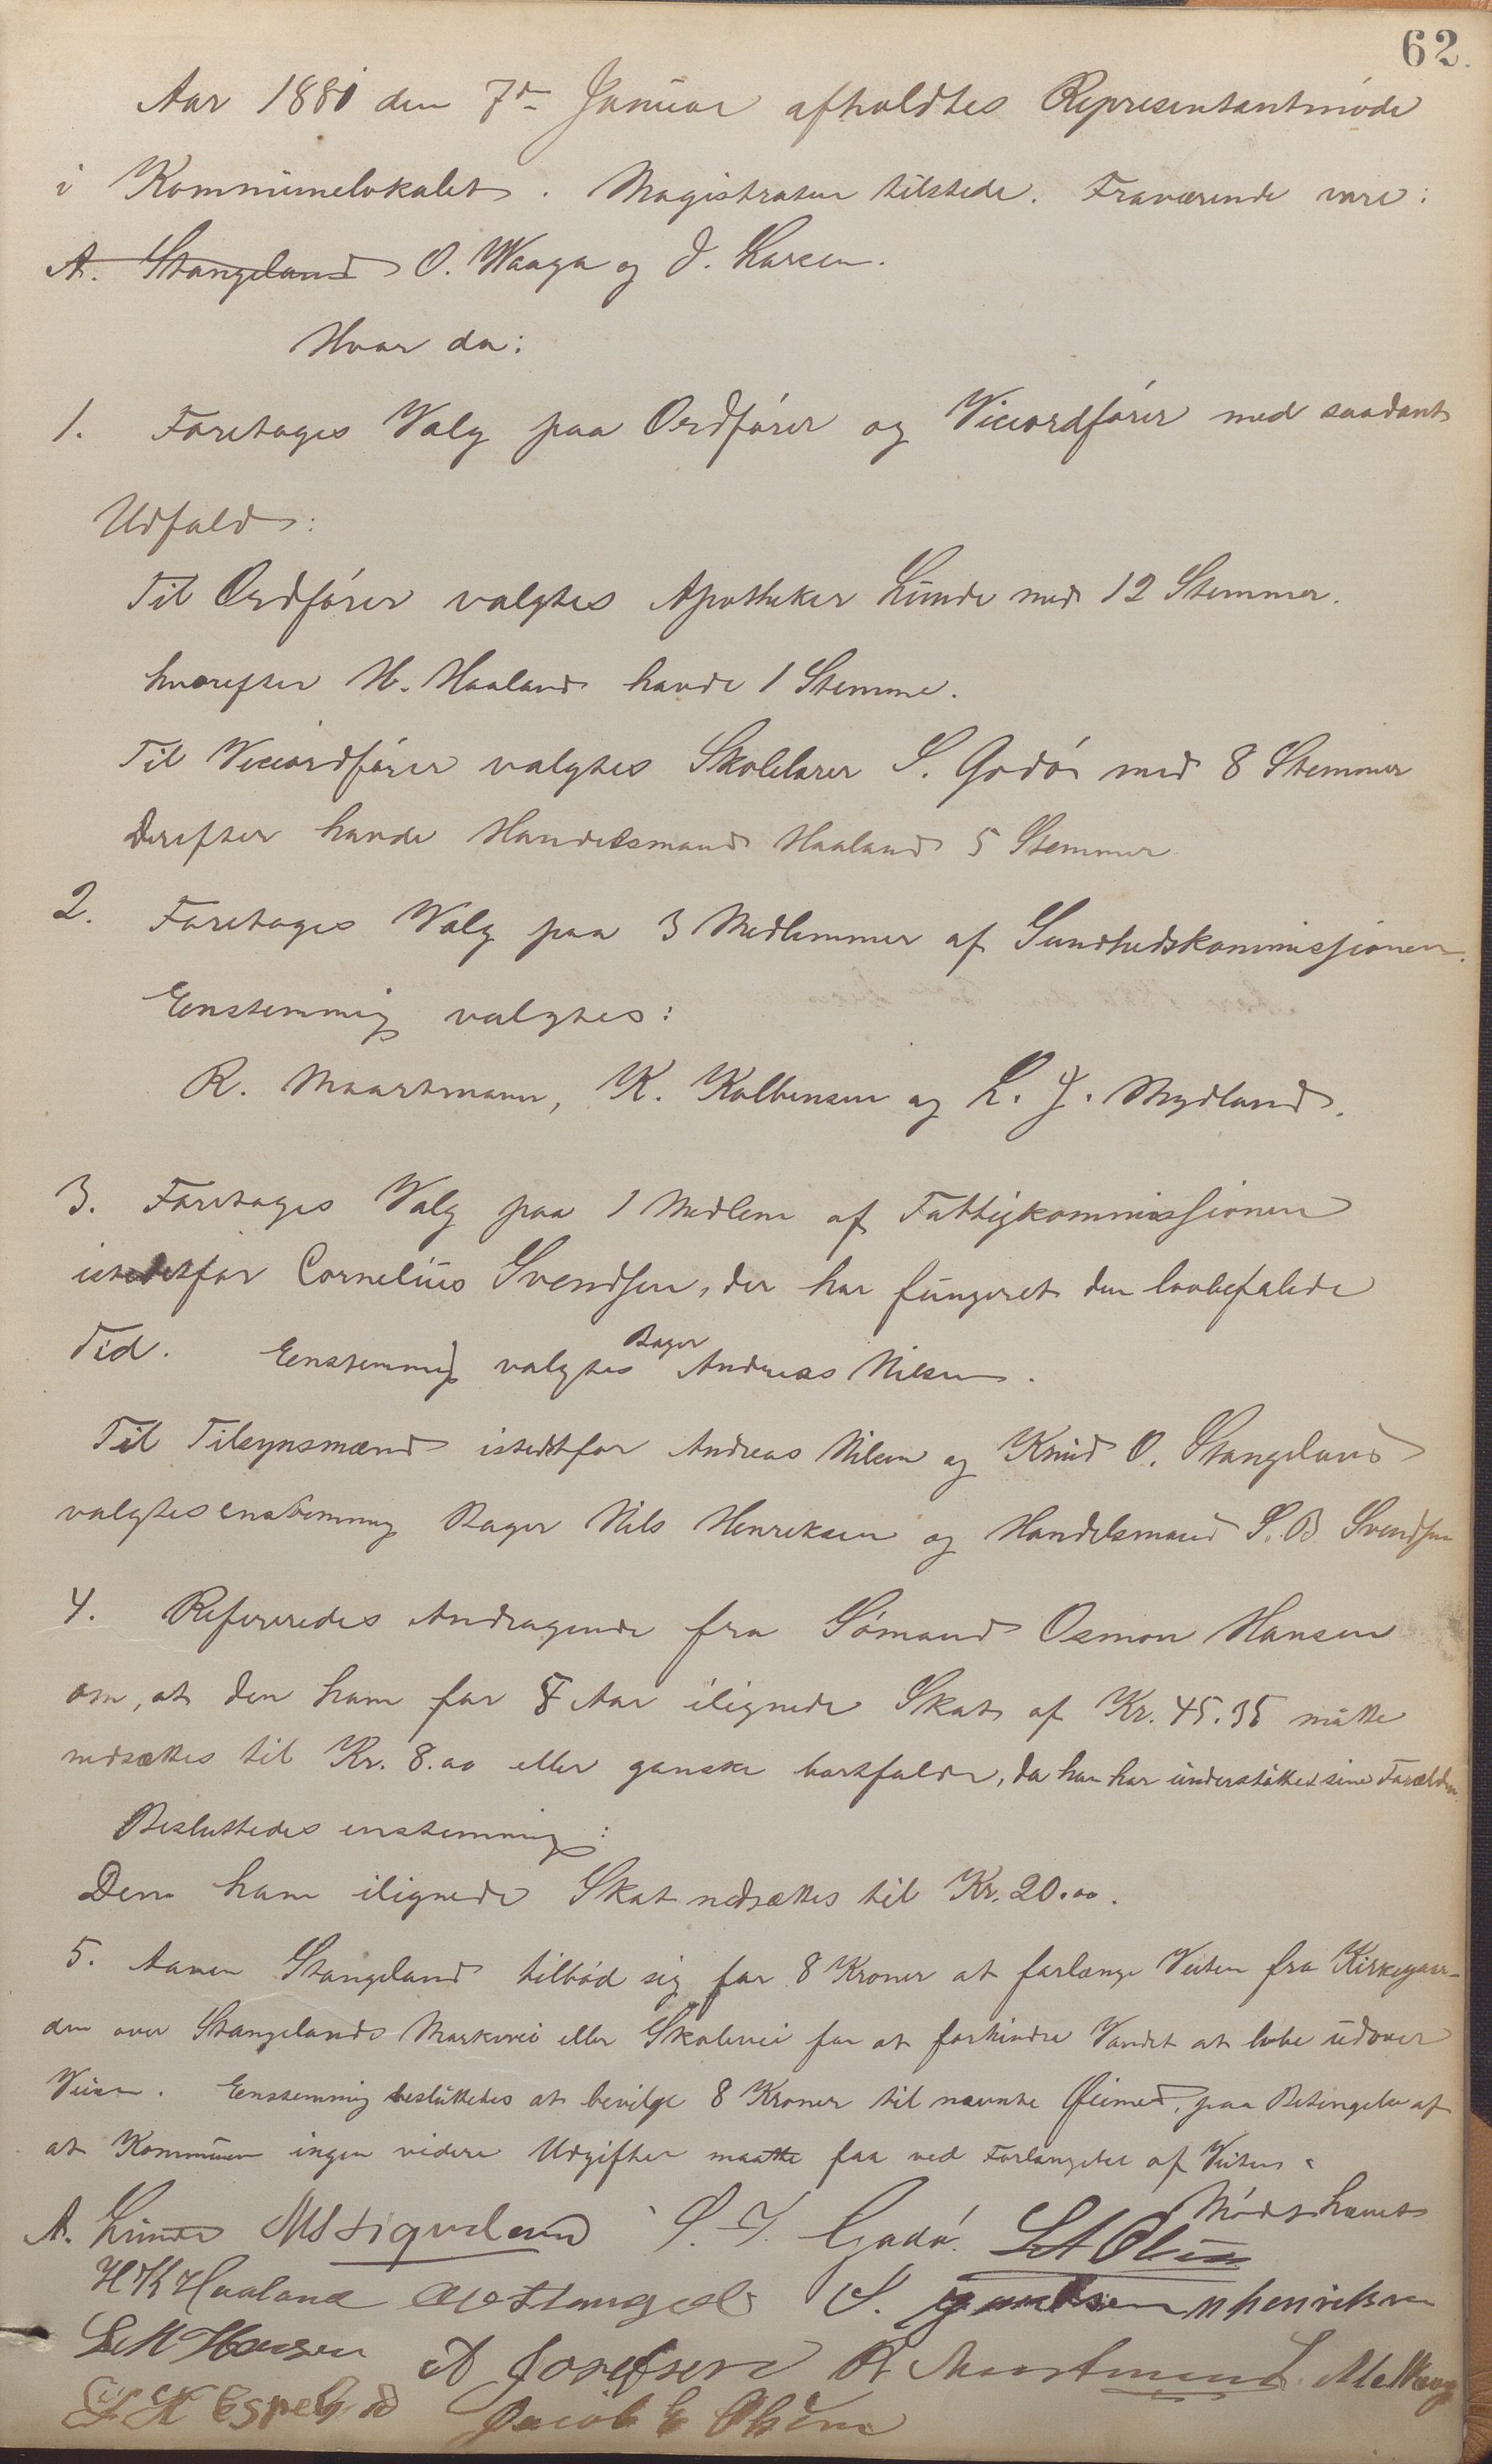 62.
Aar 1881 den 7de Januar afholdtes Representantmöde
i Kommunelokalet. Magistraten tilstede. Fraværende vare:
A. Stangeland O. Waaga og J. Larsen.
Hvor da:
1. Foretoges Valg paa Ordförer og Viceordförer med saadant
Udfald:
Til Ordförer valgtes Apotheker Lunde med 12 Stemmer.
hvorefter H. Haaland havde 1 Stemme.
Til Viceordförer valgtes Skolelærer S. Godö med 8 Stemmer
Derefter havde Handelsmand Haaland 5 Stemmer
2. Foretoges Valg paa 3 Medlemmer af Sundhedskommissionen.
Eenstemmig valgtes:
R. Maartmann, K. Kolbensen og L. J. Mydland.
3. Foretoges Valg paa 1 Medlem af Fattigkommissionen
istedetfor Cornelius Svendsen, der har fungeret den lovbefalede
Tid. Eenstemmig valgtes Bager Andreas Nilsen.
Til Tilsynsmænd istedetfor Andreas Nilsen og Knud O. Stangeland
valgtes enstemmig Bager Nils Henriksen og Handelsmand S. B. Svendsen
4. Refereredes Andragende fra Sömand Osmon Hansen
om, at den ham for Aar ilignede Skat af Kr. 45.35 måtte
nedsættes til Kr. 8.00 eller ganske bortfalde, da han har understöttet sine Forældre.
Besluttedes enstemmig:
Den ham ilignede Skat nedsættes til Kr. 20.00.
5. Aanen Stangeland tilböd sig for 8 Kroner at forlænge Veiten fra Kirkegaar-
den over Stangelands Markvei eller Skolevei for at forhindre Vandet at löbe udover
Veien. Eenstemmig besluttedes at bevilge 8 Kroner til nævnte Öiemed, paa Betingelse af
at Kommunen ingen videre Udgifter maatte faa ved Forlængelse af Veiten.
Mödet hævet
A. Lunde M Stigeland S. J. Godö. L A Olsen
H K Haaland A O Stangel S. n henriksen
L M Hansen A Josefsen R Maartmann
Espeld Jacob E Olsen